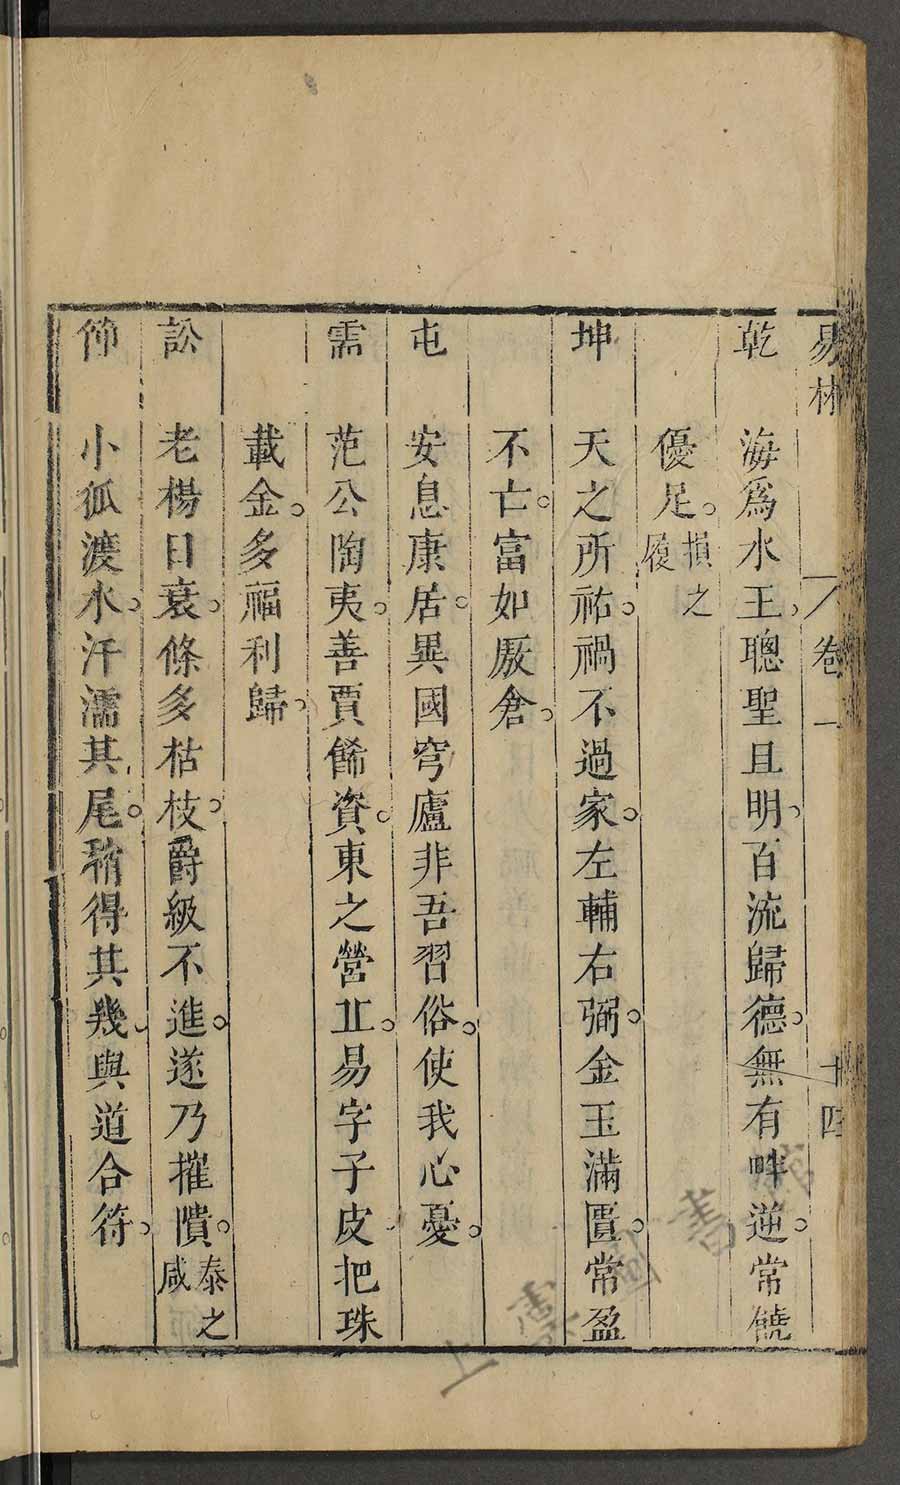 易林 卷一 十四
乾 海為水王聰聖且明百流歸德無有畔逆常饒
優足損之履
坤 天之所祐禍不過家左輔右弼金玉滿匱常盈
不亡富如厫倉
屯 安息康居異國穹廬非吾習俗使我心憂
需 范公陶夷善賈餙資東之營丘易字子皮把珠
載金多福利歸
訟 老楊日衰條多枯枝爵級不進遂乃摧隤泰之咸
師 小狐渡水汙濡其尾稍得其幾與道合符